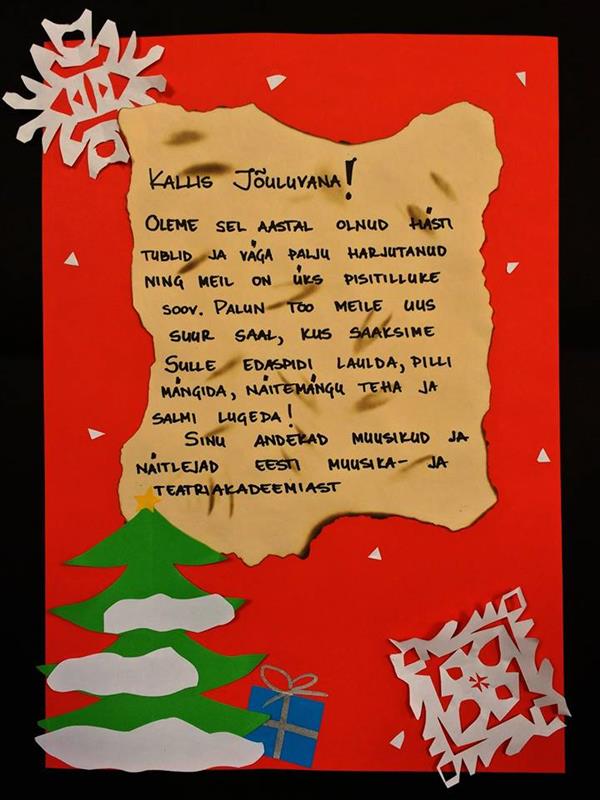 KALLIS JÕULUVANA!
OLEME SEL AASTAL OLNUD HÄSTI
TUBLID JA VÄGA PALJU HARJUTANUD
NING MEIL ON ÜKS PISITILLUKE
SOOV. PALUN TOO MEILE UUS
SUUR SAAL, KUS SAAKSIME
SULLE EDASPIDI LAULDA, PILLI
MÄNGIDA, NÄITEMÄNGU TEHA JA
SALMI LUGEDA!
SINU ANDEKAD MUUSIKUD JA
NÄITLEJAD EESTI MUUSIKA- JA
TEATRIAKADEEMIAST